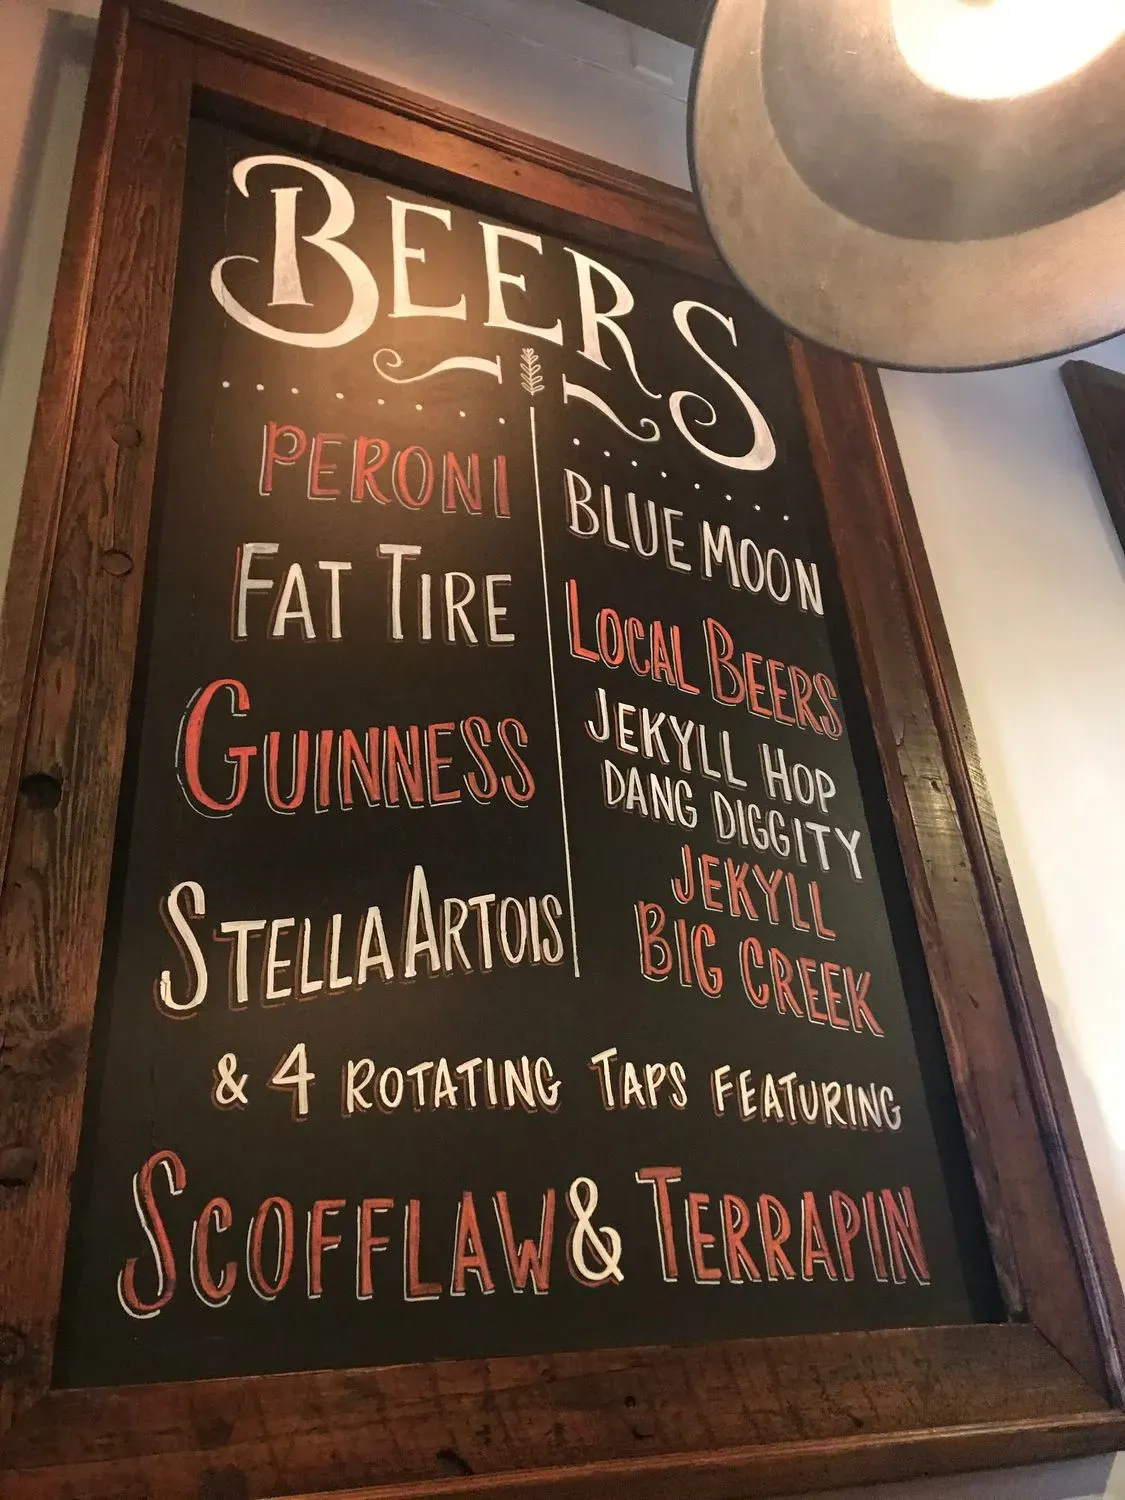 BEERS
PERONI
FAT TIRE
GUINNESS
STELLA ARTOIS
BLUE MOON
LOCAL BEERS
JEKYLL HOP
DANG DIGGITY
JEKYLL
BIG CREEK
& 4 ROTATING TAPS FEATURING
SCOFFLAW & TERRAPIN